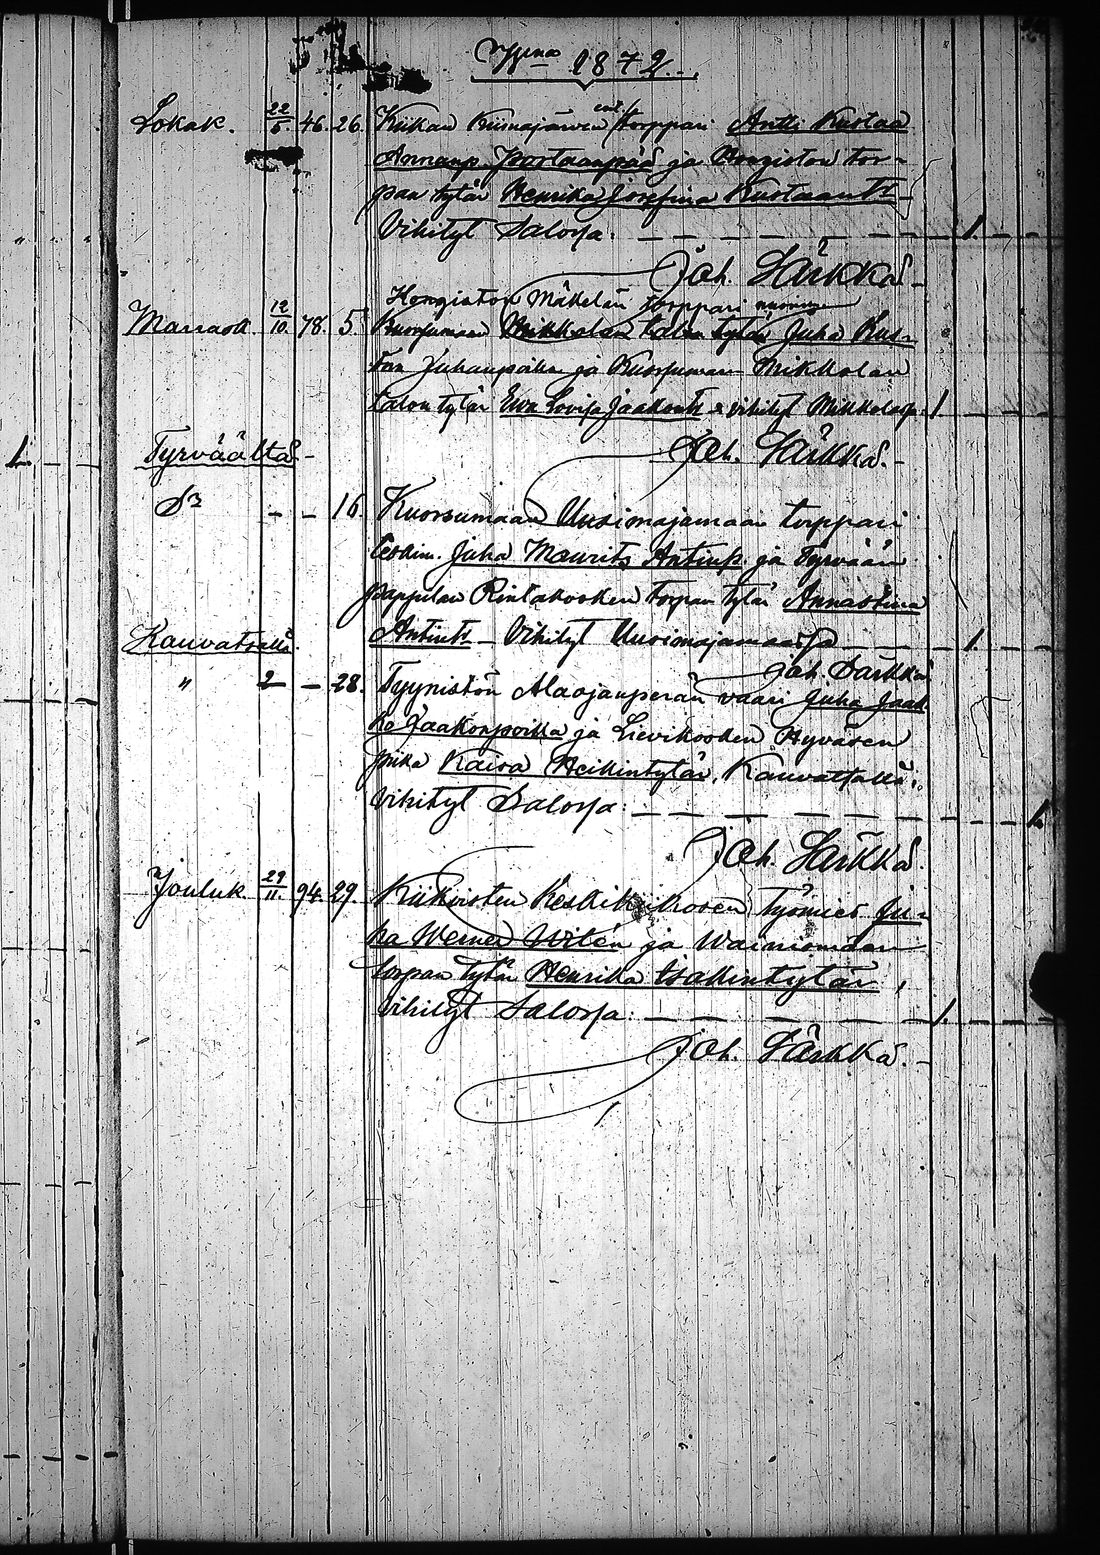 1872.
Lokak. 22/5. 46. 26. Kiikan Kiimajärven ent. torppari Antti Kustaa
Annanp. ja Hongiston tor-
pan tytär Henrika Josefina Kustaant.
Vihityt Salossa. 1.
Joh. Särkkä.
Hongiston Mäkelän torppari nuorim.
Marrask. 12/10. 78. 5 Kuorsumaan Mikkolan talon tytär Juha Kus-
taa Juhanpoika ja Kuorsuman Mikkolan
talon tytär Ewa Lovisa Jaakont. vihityt Mikkolassa. 1.
1. Tyrväältä Joh. Särkkä.
Do - - 16. Kuorsumaan Uusimajamaan torppari
leskim. Juha Maurits Antinp. ja Tyrvään
pappilan Rintakosken torpan tytär Anna Stina
Kauvatsalla. Antint. Vihityt Uusimajamaassa 1.
Joh. Särkkä
" 2 - 28. Tyyniston Alaojanperän vaari Juha Jaak-
ko Jaakonpoika ja Lievikosken Hyväsen
piika Kaisa Heikintytär, Kauvatsalla.
Vihityt Salossa. 1.
Joh. Särkkä.
Jouluk. 29/11. 94. 29. Kiikoisten Keskikiikosen Työmies Ju-
ha Werner Witén ja Wainiomäen
torpan tytär Henrika Isakintytär,
vihityt Salossa. 1.
Joh. Särkkä.